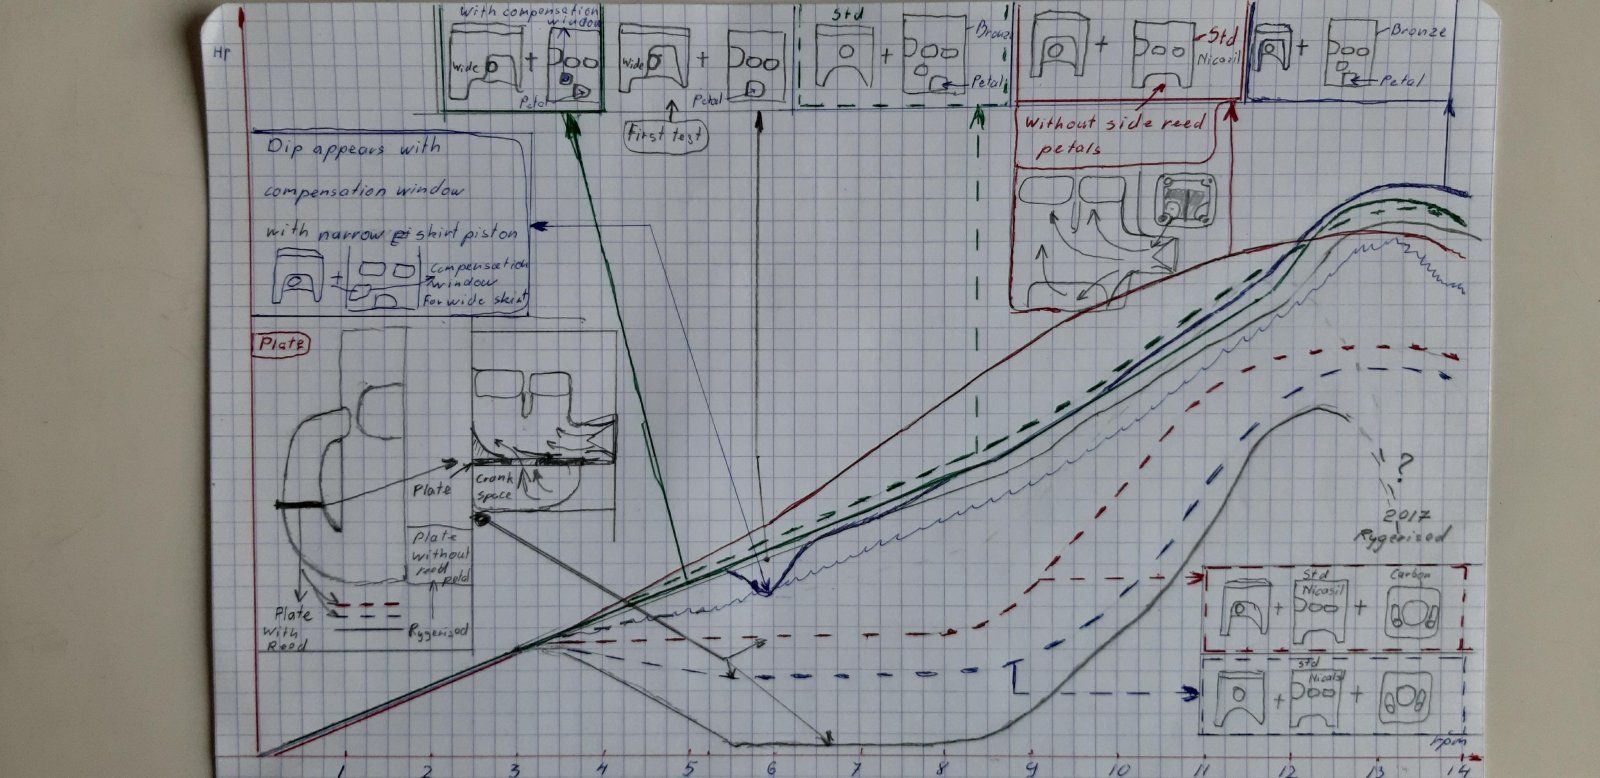 Hp
With compensation
window
Wide
+
Petal
Wide
+
Petal
First test
Std
+
Bronze
Petal
+
Std
Nicasil
Without side reed
petals
+
Bronze
Petal
Dip appears with
compensation window
with narrow skirt piston
+
Compensation
window
For wide skirt
Plate
Plate
Crank
space
Plate
without
reed
Plate
with
Reed
Rygerized
?
2017
Rygerised
+
Std
Nicasil
+
Carbon
+
std
Nicasil
+
rpm
1 2 3 4 5 6 7 8 9 10 11 12 13 14